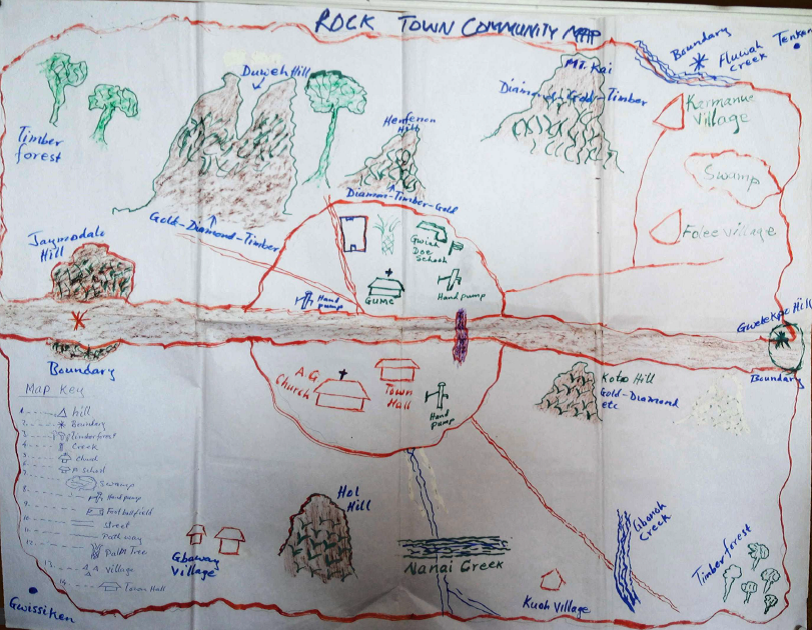 ROCK TOWN COMMUNITY MAP
Boundary
Fluwah
creek
Tenken
Mt. Rai
Diamond-Gold-Timber
Duweh Hill
Henfenen
Hill
Karmanue
Village
Timber
forest
Swamp
Diamon-Timber-Gold
Gold-Diamond-Timber
Gwiah
Doe
School
Folee Village
Jaymodale
Hill
Hand
pump
GUMC
Hand pump
Gwelekpe Hill
Boundary
Boundary
A.G
Church
Town
Hall
Hand
pump
Kotoo Hill
Gold-Diamond
etc
Map Key
1. hill
2. Boundary
3. Timberforest
4. Creek
5. Church
6. School
7. Swamp
8. Hand pump
9. Football field
10. street
11. Path way
12. Palm Tree
13. Village
14. Town Hall
Hol
Hill
Gbaway
Village
Nanai Creek
Gbanch
Creek
Kuoh Village
Timber forest
Gwissiken